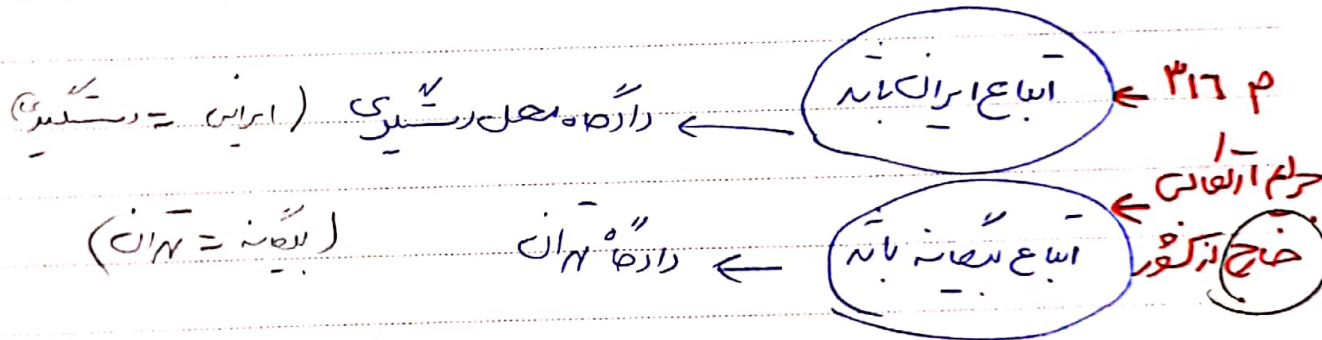 م ۳۱۶ ← اتباع ایران باشد ← دادگاه محل دستگیری (ایرانی = دستگیری)
جرایم ارتکابی
خارج از کشور ← اتباع بیگانه باشد ← دادگاه تهران (بیگانه = تهران)